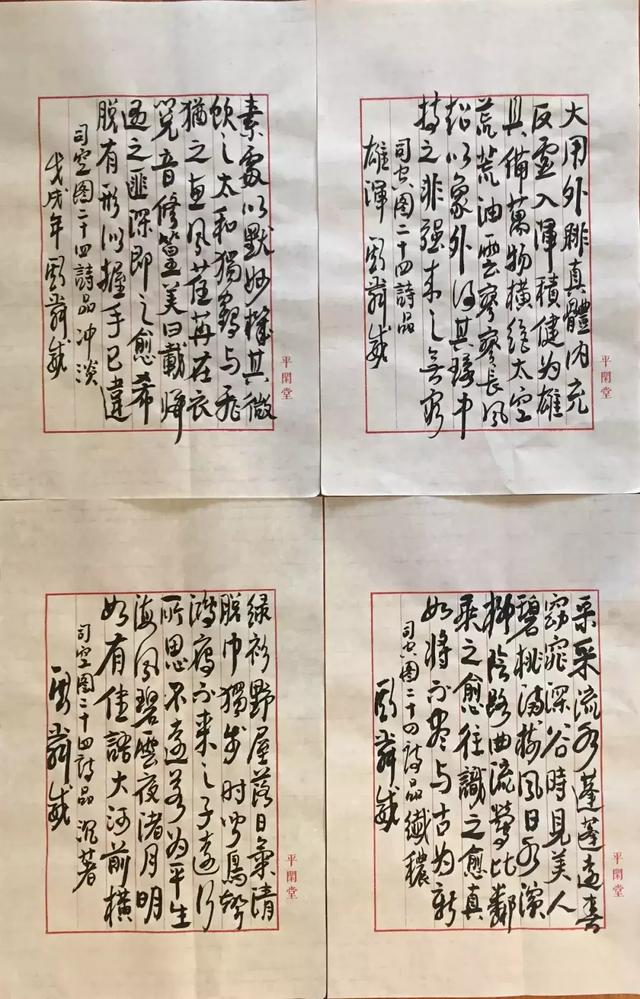 大用外腓真體内充
反虚入渾積健为雄
具備萬物横絶太空
荒荒油雲寥寥長风
超以象外得其環中
持之非强来之無窮
司空图二十四詩品
雄渾
平閑堂
素處以默妙機其微
飲之太和獨鶴与飛
猶之惠风荏苒在衣
閲音修篁美曰載歸
遇之匪深即之愈希
脱有形似握手已違
司空图二十四詩品 冲淡
戊戌年
平閑堂
采采流水蓬蓬遠春
窈窕深谷時見美人
碧桃滿樹风日水濱
柳陰路曲流鶯比鄰
乘之愈往識之愈真
如将不盡与古为新
司空图二十四詩品 纖穠
平閑堂
緑衫野屋落日氣清
脱巾獨步时闻鳥聲
鴻鴈不来之子遠行
所思不遠若为平生
海风碧雲夜渚月明
如有佳語大河前横
司空图二十四詩品 沉著
平閑堂